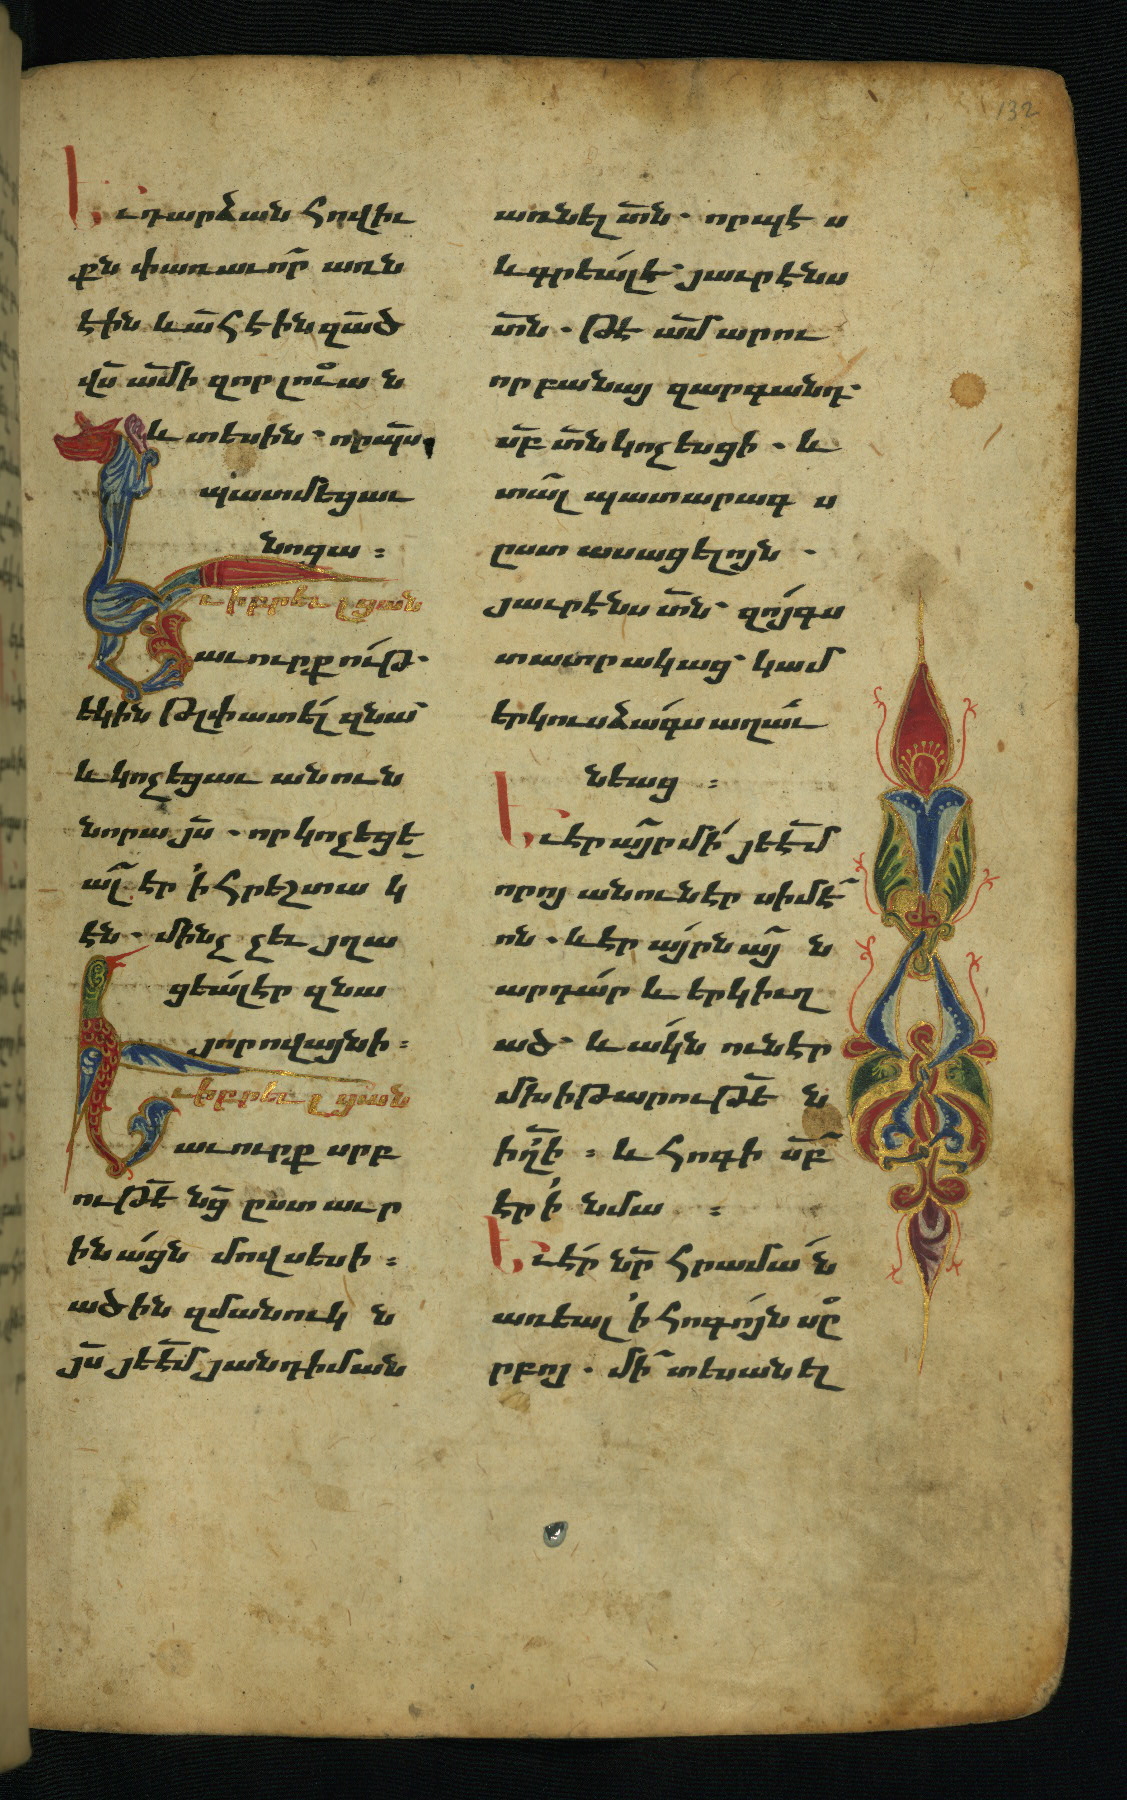 132
Եւ դարձան հովիւ
քն փառաւո՜ր առն
էին և ա՜հէին զա՜ծ
վս՜ ամ՜ի զոր լուա ն
և տեսին · որպ՜ս
պատմեցաւ
նոցա ։
Եւ իբրեւ լցան
աւուրք ութ ·
եկին թլփատել զնա՜
և կոչեցաւ անուն
նորա յս՜ · որ կոչեցե
ալ՜ էր ՛ի հրեշտա կ
էն · մինչ չեւ յղա
ցեալ էր զնա
յորովայնի ։
Եւ իբրեւ լցան
աւուրք սրբ
ութե՜ նց՜ ըստ աւր
ինացն մովսեսի ։
ածին զմանուկ ն
յս՜ յեէ՜մ յանդիման
առնել տ՜ն · որպէ ս
և գրեալ է · յաւրէնս
տ՜ն · թէ ամ՜ արու
որ բանայ զարգանդ ·
ս՜բ տ՜ն կոչեսցի · և
տալ՜ պատարագ ս
ըստ ասացելոյն ·
յաւրէնս տ՜ն · զոյգս
տատրակաց · կամ
երկուս ձագս աղաւ
նեաց ։
Եւ էր այ՜ր մի յեէ՜մ
որոյ անուն էր սիմէ՜
ոն · և էր այրն այ՜ ն
արդար և երկիւղ
ած · և ակն ունէր
մխիթարութե՜ ն
իղ՜ի ։ և հոգի ս՜բ
էր ՛ի նմա ։
Եւ էր նր՜ հրաման
առեալ ՛ի հոգոյն սը
րբոյ · մի՜ տեսանել